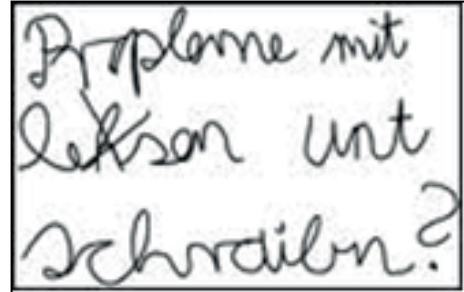 Propleme mit
leksen unt
schraibn?